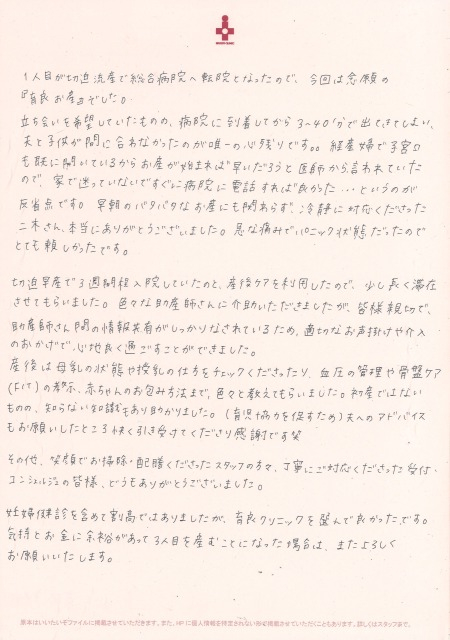 1人目が切迫流産で総合病院へ転院となったので、今回は念願の
『育良お産』でした。
立ち会いを希望していたものの、病院に到着してから3〜40分で出てきてしまい、
夫と子供が間に合わなかったのが唯一の心残りです。。経産婦で子宮口
も既に開いているからお産が始まれば早いだろうと医師から言われていた
ので、家で迷っていないですぐに病院に電話すれば良かった…というのが
反省点です。早朝のバタバタなお産にも関わらず、冷静に対応くださった
二木さん、本当にありがとうございました。急な痛みでパニック状態だったので
とても頼しかったです。
切迫早産で3週間程入院していたのと、産後ケアを利用したので、少し長く滞在
させてもらいました。色々な助産師さんに介助いただきましたが、皆様親切で、
助産師さん間の情報共有がしっかりなされているため、適切なお声掛けや介入
のおかげで、心地良く過ごすことができました。
産後は母乳の状態や授乳の仕方をチェックくださったり、血圧の管理や骨盤ケア
の教示、赤ちゃんのお包み方法まで、色々と教えてもらいました。初産ではない
ものの、知らない知識もあり助かりました。(育児協力を促すため)夫へのアドバイス
もお願いしたところ快く引き受けてくださり感謝です笑
その他、笑顔でお掃除・配膳くださったスタッフの方々、丁寧にご対応くださった受付・
コンシェルジュの皆様、どうもありがとうございました。
妊婦健診を含めて割高ではありましたが、育良クリニックを選んで良かったです。
気持とお金に余裕があって3人目を産むことになった場合は、またよろしく
お願いいたします。
原本はいいたいぞファイルに掲載させていただきます。また、HPに個人情報を特定されない形で掲載させていただくこともあります。詳しくはスタッフまで。